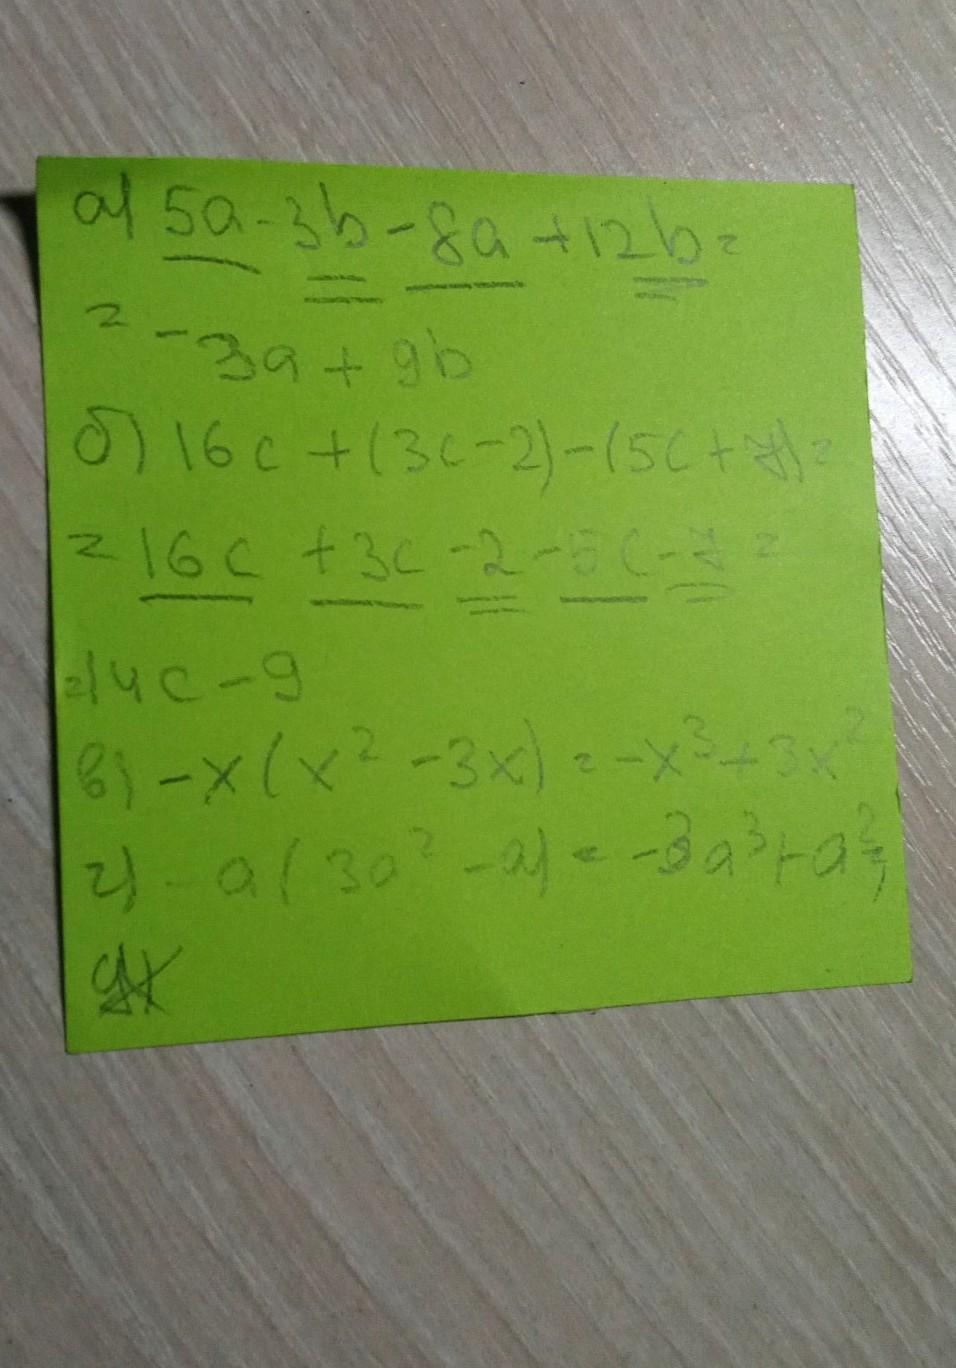 а) 5a-3b-8a+12b=
= -3a+9b
б) 16c+(3c-2)-(5c+7)=
= 16c +3c -2-5c-7=
=14c-9
в) -x(x²-3x)=-x³+3x²
г) -a(3a²-a)=-3a³+a²;